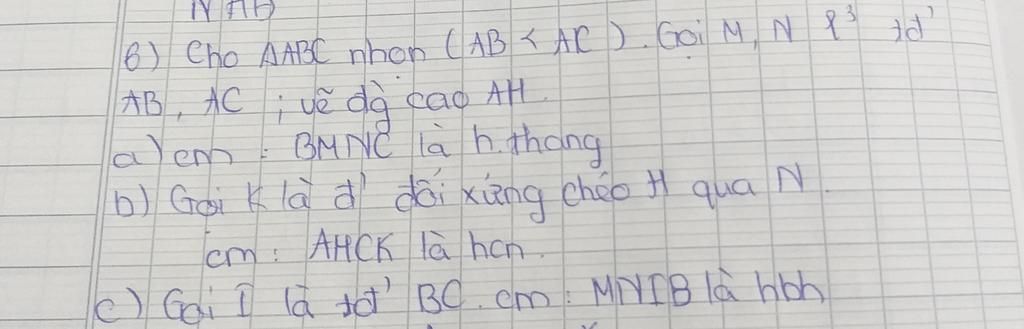 6) Cho ΔABC nhọn (AB < AC). Gọi M, N l³ tđ'
AB, AC ; vẽ đg cao AH.
a) cm : BMNC là h.thang
b) Gọi K là đ' đối xứng chéo H qua N.
cm : AHCK là hcn.
c) Gọi I là tđ' BC. cm : MNIB là hbh